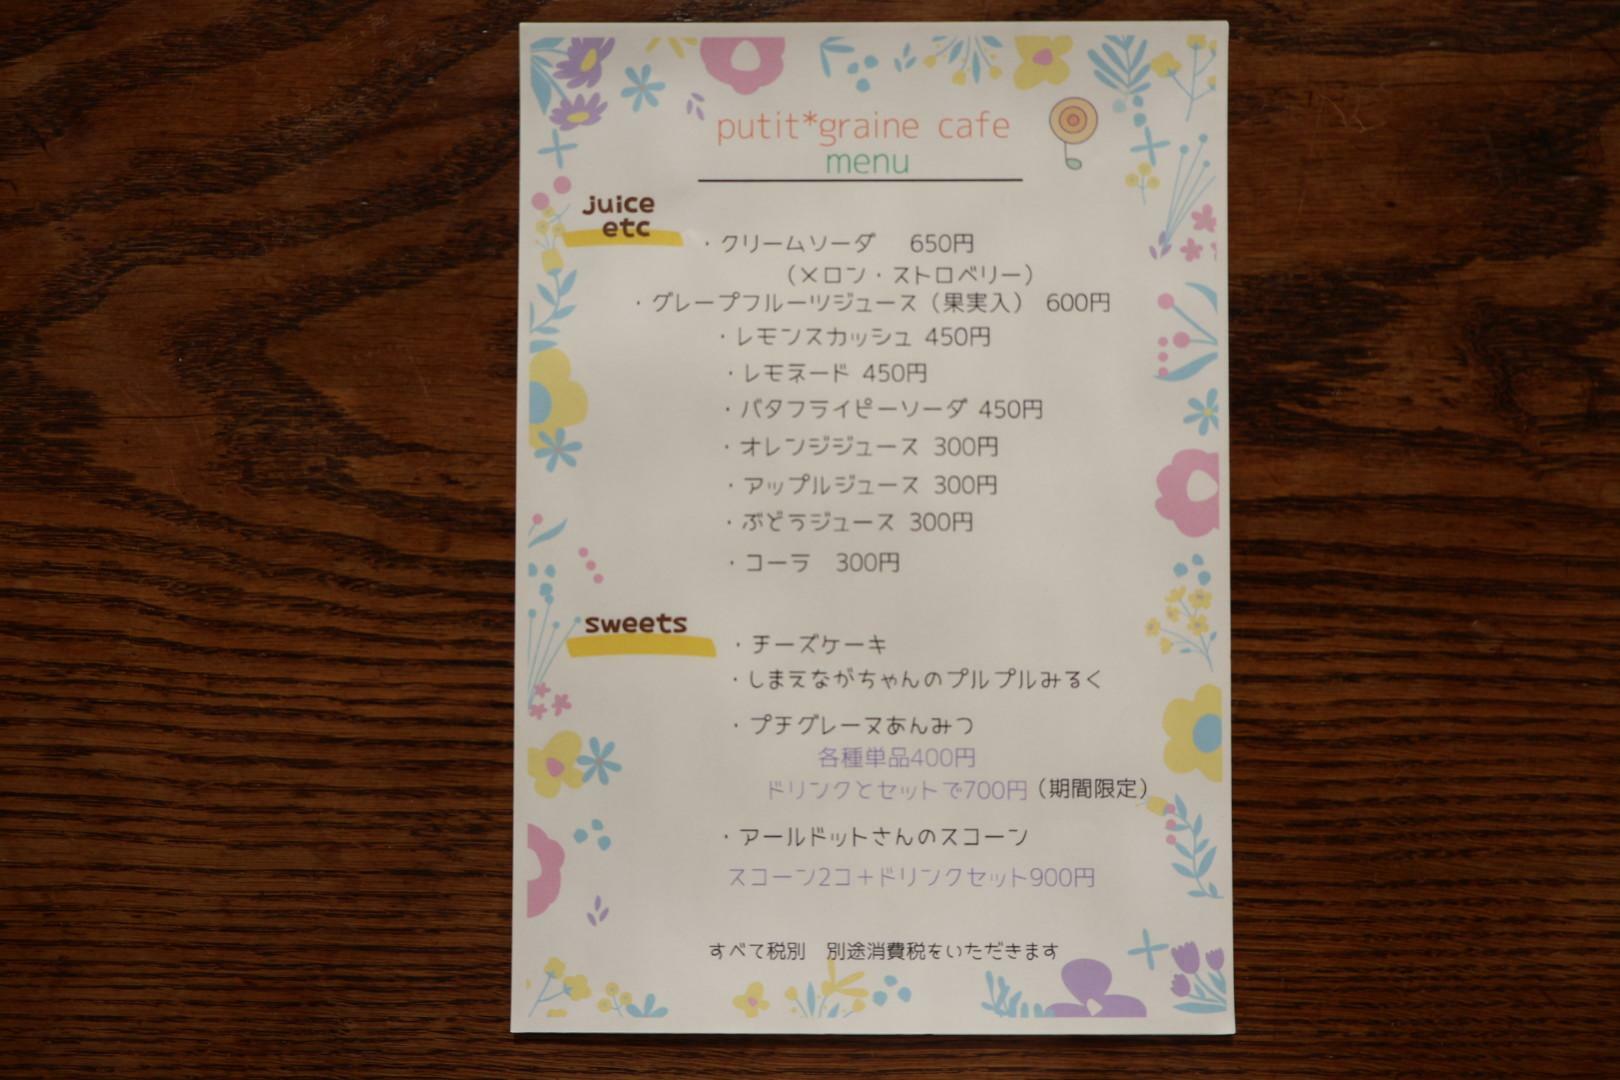 putit*graine cafe
menu
juice
etc
・クリームソーダ　650円
（メロン・ストロベリー）
・グレープフルーツジュース（果実入） 600円
・レモンスカッシュ 450円
・レモネード 450円
・バタフライピーソーダ 450円
・オレンジジュース 300円
・アップルジュース 300円
・ぶどうジュース 300円
・コーラ　300円
sweets
・チーズケーキ
・しまえながちゃんのプルプルみるく
・プチグレーヌあんみつ
各種単品400円
ドリンクとセットで700円（期間限定）
・アールドットさんのスコーン
スコーン2コ＋ドリンクセット900円
すべて税別　別途消費税をいただきます